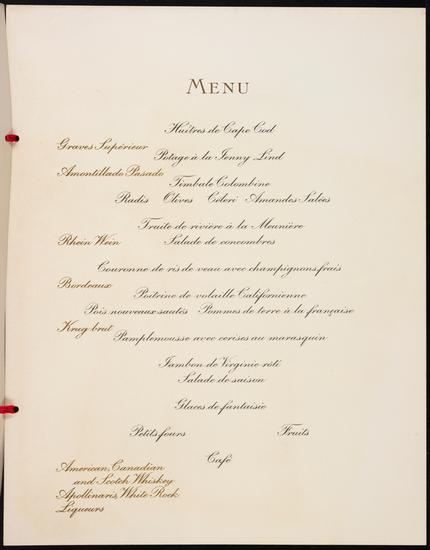 MENU
Huîtres de Cape Cod
Graves Supérieur
Potage à la Jenny Lind
Amontillado Pasado
Timbale Colombine
Radis Olives Céleri Amandes Salées
Truite de rivière à la Meunière
Rhein Wein
Salade de concombres
Couronne de ris de veau avec champignons frais
Bordeaux
Poitrine de volaille Californienne
Pois nouveaux sautés Pommes de terre à la française
Krug brut
Pamplemousse avec cerises au marasquin
Jambon de Virginie rôti
Salade de saison
Glaces de fantaisie
Petits fours Fruits
Café
American, Canadian
and Scotch Whiskey
Apollinaris, White Rock
Liqueurs